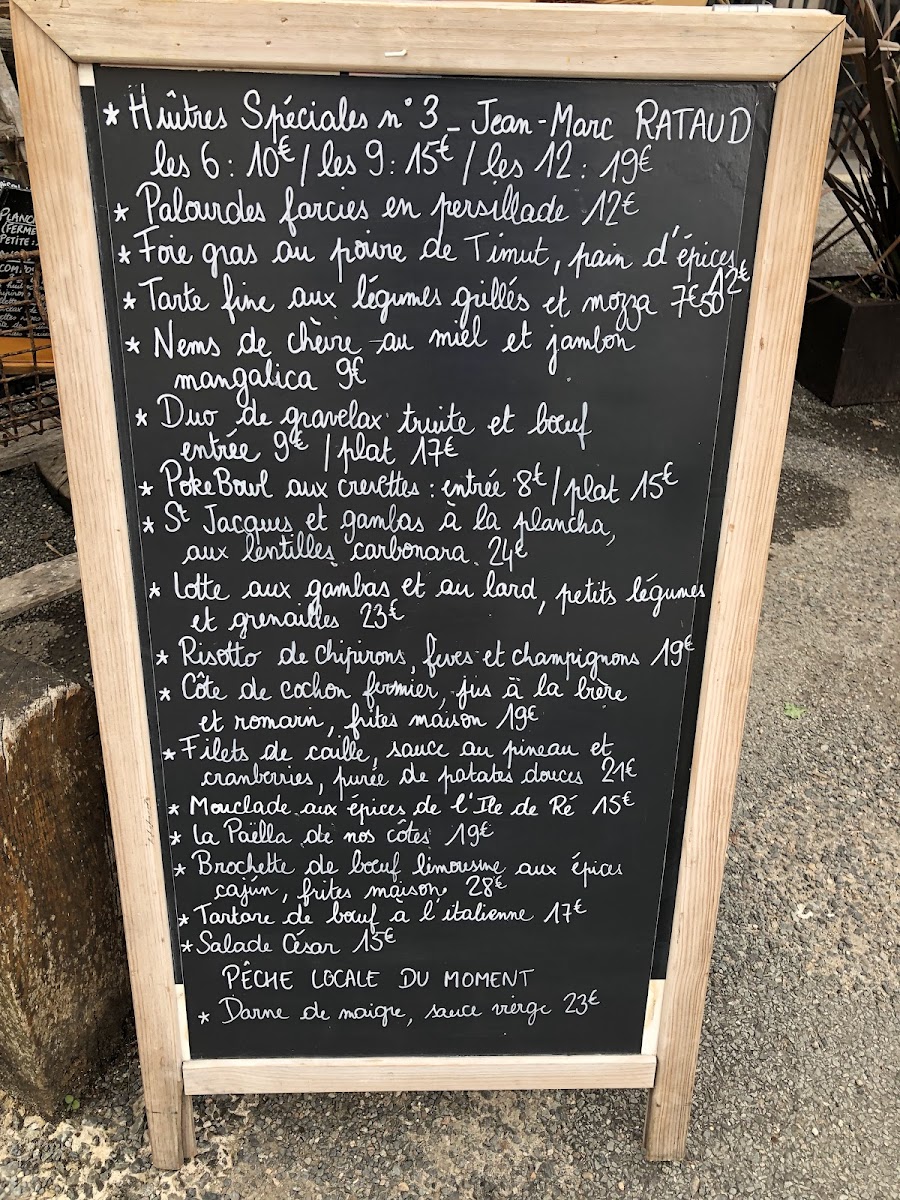 * Hûîtres Spéciales n°3 - Jean-Marc RATAUD
les 6 : 10€ / les 9 : 15€ / les 12 : 19€
* Palourdes farcies en persillade 12€
* Foie gras au poivre de Timut, pain d'épices
12€
* Tarte fine aux légumes grillés et mozza 7€50
* Nems de chèvre au miel et jambon
mangalica 9€
* Duo de gravelax truite et bœuf
entrée 9€ / plat 17€
* PokeBowl aux crevettes : entrée 8€ / plat 15€
* St Jacques et gambas à la plancha,
aux lentilles carbonara 24€
* Lotte aux gambas et au lard, petits légumes
et grenailles 23€
* Risotto de chipirons, fèves et champignons 19€
* Côte de cochon fermier, jus à la bière
et romarin, frites maison 19€
* Filets de caille, sauce au pineau et
cranberries, purée de patates douces 21€
* Mouclade aux épices de l'Ile de Ré 15€
* La Paëlla de nos côtes 19€
* Brochette de bœuf limousine aux épices
cajun, frites maison 28€
* Tartare de bœuf à l'italienne 17€
* Salade César 15€
PÊCHE LOCALE DU MOMENT
* Darne de maigre, sauce vierge 23€
PLANC
(FERME
PETITE :